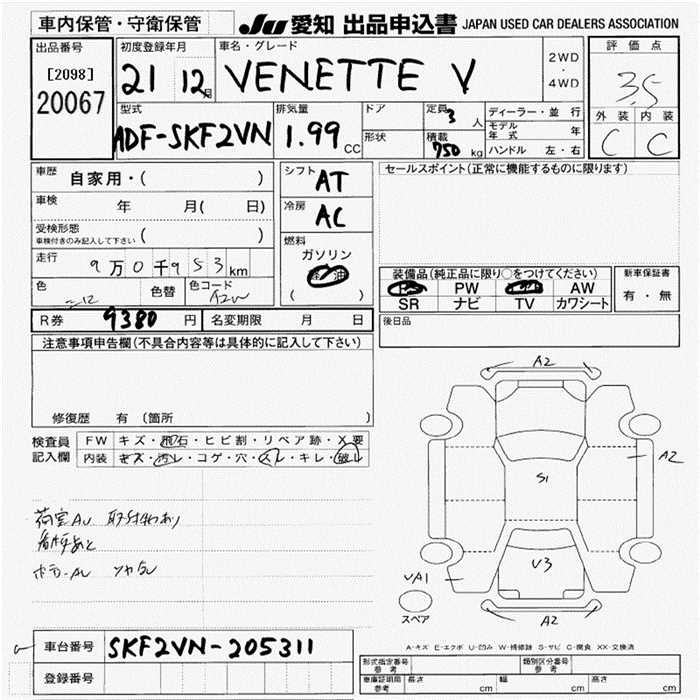 車内保管・守衛保管
JU 愛知 出品申込書 JAPAN USED CAR DEALERS ASSOCIATION
出品番号
[2098]
20067
初度登録年月
21 12月
車名・グレード
VENETTE V
2WD
・
4WD
評価点
3.5
外装 内装
C C
型式
ADF-SKF2VN
排気量
1.99 CC
ドア
形状
定員 3 人
積載 750 kg
ディーラー・並 行
モデル年式 年
ハンドル 左・右
車歴 自家用・( )
車検 年 月( 日)
受検形態
車検付きのみ記入して下さい ( )
走行 9万0千953km
色 色替 色コード
R券 9380 円 名変期限 月 日
シフト AT
冷房 AC
燃料
ガソリン
軽油
( )
セールスポイント(正常に機能するものに限ります)
装備品(純正品に限り○をつけてください)
PW AW
SR ナビ TV カワシート
新車保証書
有・無
後日品
注意事項申告欄(不具合内容等は具体的に記入して下さい)
修復歴 有 (箇所 )
検査員記入欄
FW キズ・飛石・ヒビ割・リペア跡・X要
内装 キズ・汚レ・コゲ・穴・スレ・キレ・破レ
A2
A2
S1
V3
UA1
A2
スペア
A-キズ E-エクボ U-凹み W-補修跡 S-サビ C-腐食 XX-交換済
車台番号 SKF2VN-205311
登録番号
形式指定番号
参考
類別区分番号
参考
車庫証明用
参考
長さ cm 幅 cm 高さ cm